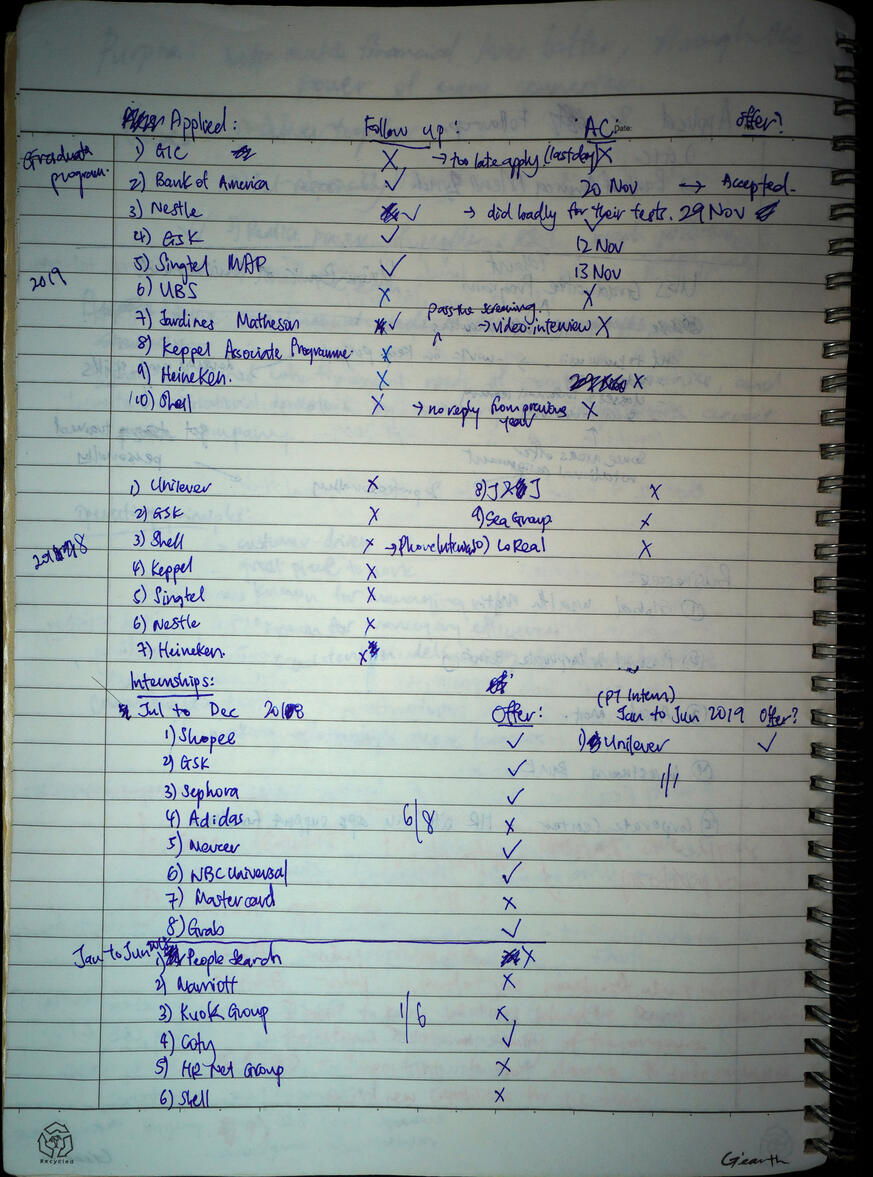 Applied: Follow up: AC: Date: offer?
Graduate program.
1) GIC X → too late apply (last day) X
2) Bank of America ✓ 20 Nov → Accepted.
3) Nestle ✓ → did badly for their tests. 29 Nov
4) GSK ✓ 12 Nov
2019
5) Singtel MAP ✓ 13 Nov
6) UBS X X
pass the screening.
7) Jardines Matheson ✓ ^ → video interview X
8) Keppel Associate Programme X
9) Heineken. X X
10) Shell X → no reply from previous year X
1) Unilever X 8) J&J X
2) GSK X 9) Sea Group X
2018
3) Shell X → Phone Interview 10) LoReal X
4) Keppel X
5) Singtel X
6) Nestle X
7) Heineken. X
Internships:
Jul to Dec 2018 Offer: (PT Intern) Jan to Jun 2019 Offer?
1) Shopee ✓ 1) Unilever ✓
2) GSK ✓ 1/1
3) Sephora ✓
4) Adidas 6/8 X
5) Mercer ✓
6) NBC Universal ✓
7) Mastercard X
8) Grab ✓
Jan to Jun
1) People Search X
2) Marriott X
3) Kuok Group 1/6 X
4) Coty ✓
5) HR Net Group X
6) Shell X
Recycled
G'earth